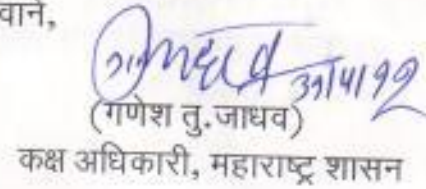 वाने,
३१/५/१२
(गणेश तु.जाधव)
कक्ष अधिकारी, महाराष्ट्र शासन